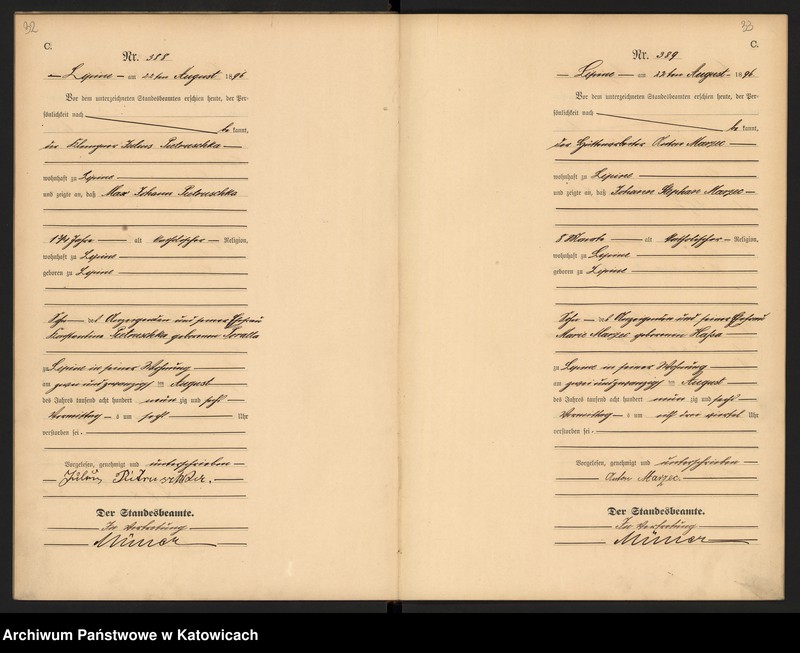 32
C.
Nr. 388
Lipine am 22ten August 1896
Vor dem unterzeichneten Standesbeamten erschien heute, der Per-
sönlichkeit nach
be kannt,
der Klempner Julius Pietruschka
wohnhaft zu Lipine
und zeigte an, daß Max Johann Pietruschka
alt katholischer Religion,
wohnhaft zu Lipine
geboren zu Lipine
Sohn des Anzeigenden und seiner Ehefrau
Pietruschka geborenen
zu Lipine in seiner Wohnung
am zwei und zwanzigsten August
des Jahres tausend acht hundert neun zig und sechs
Vormittag s um sechs Uhr
verstorben sei
Vorgelesen, genehmigt und unterschrieben
Julius Pietruschka.
Der Standesbeamte.
In Vertretung
33
C.
Nr. 389
Lipine am 22ten August 1896
Vor dem unterzeichneten Standesbeamten erschien heute, der Per-
sönlichkeit nach
be kannt,
der Hüttenarbeiter Anton Marzec
wohnhaft zu Lipine
und zeigte an, daß Johann Stephan Marzec
8 Monate alt katholischer Religion,
wohnhaft zu Lipine
geboren zu Lipine
Sohn des Anzeigenden und seiner Ehefrau
Marie Marzec geborenen
zu Lipine in seiner Wohnung
am zwei und zwanzigsten August
des Jahres tausend acht hundert neun zig und sechs
Vormittag s um elf drei viertel Uhr
verstorben sei
Vorgelesen, genehmigt und unterschrieben
Anton Marzec.
Der Standesbeamte.
In Vertretung
Archiwum Państwowe w Katowicach